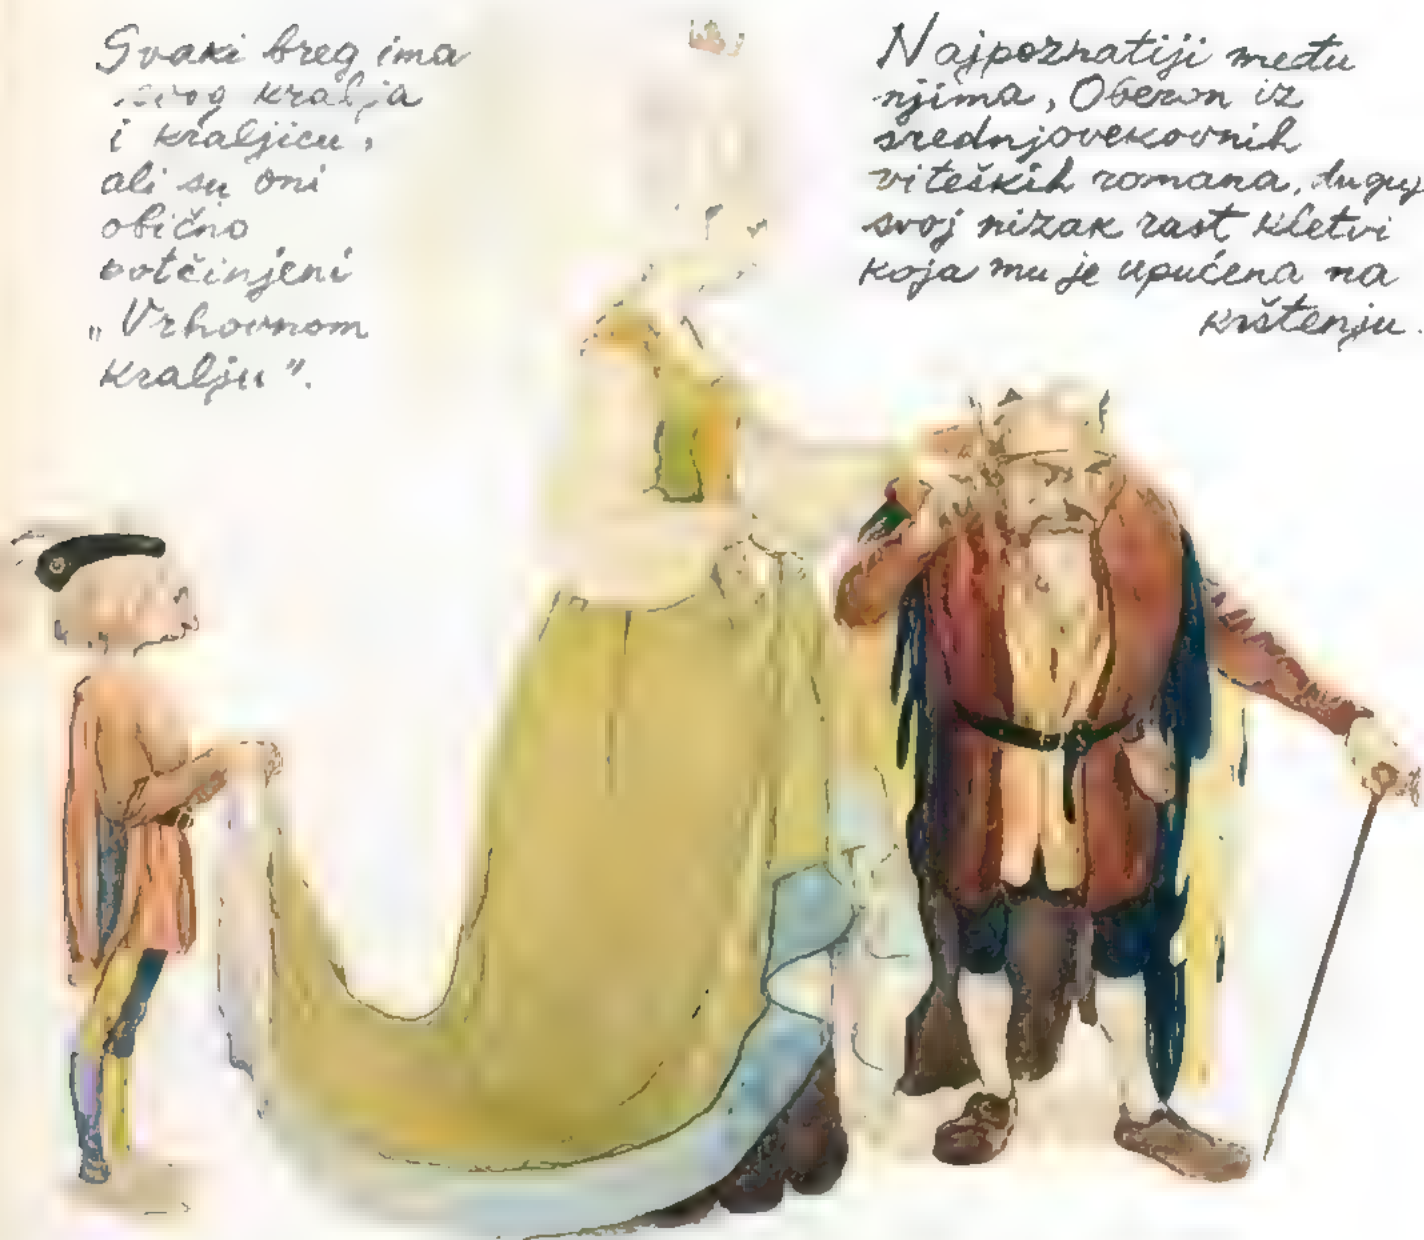 Svaki breg ima
svog kralja
i kraljicu,
ali su oni
obično
potčinjeni
„Vrhovnom
kralju”.
Najpoznatiji među
njima, Oberon iz
srednjovekovnih
viteških romana, duguje
svoj nizak rast kletvi
koja mu je upućena na
krštenju.